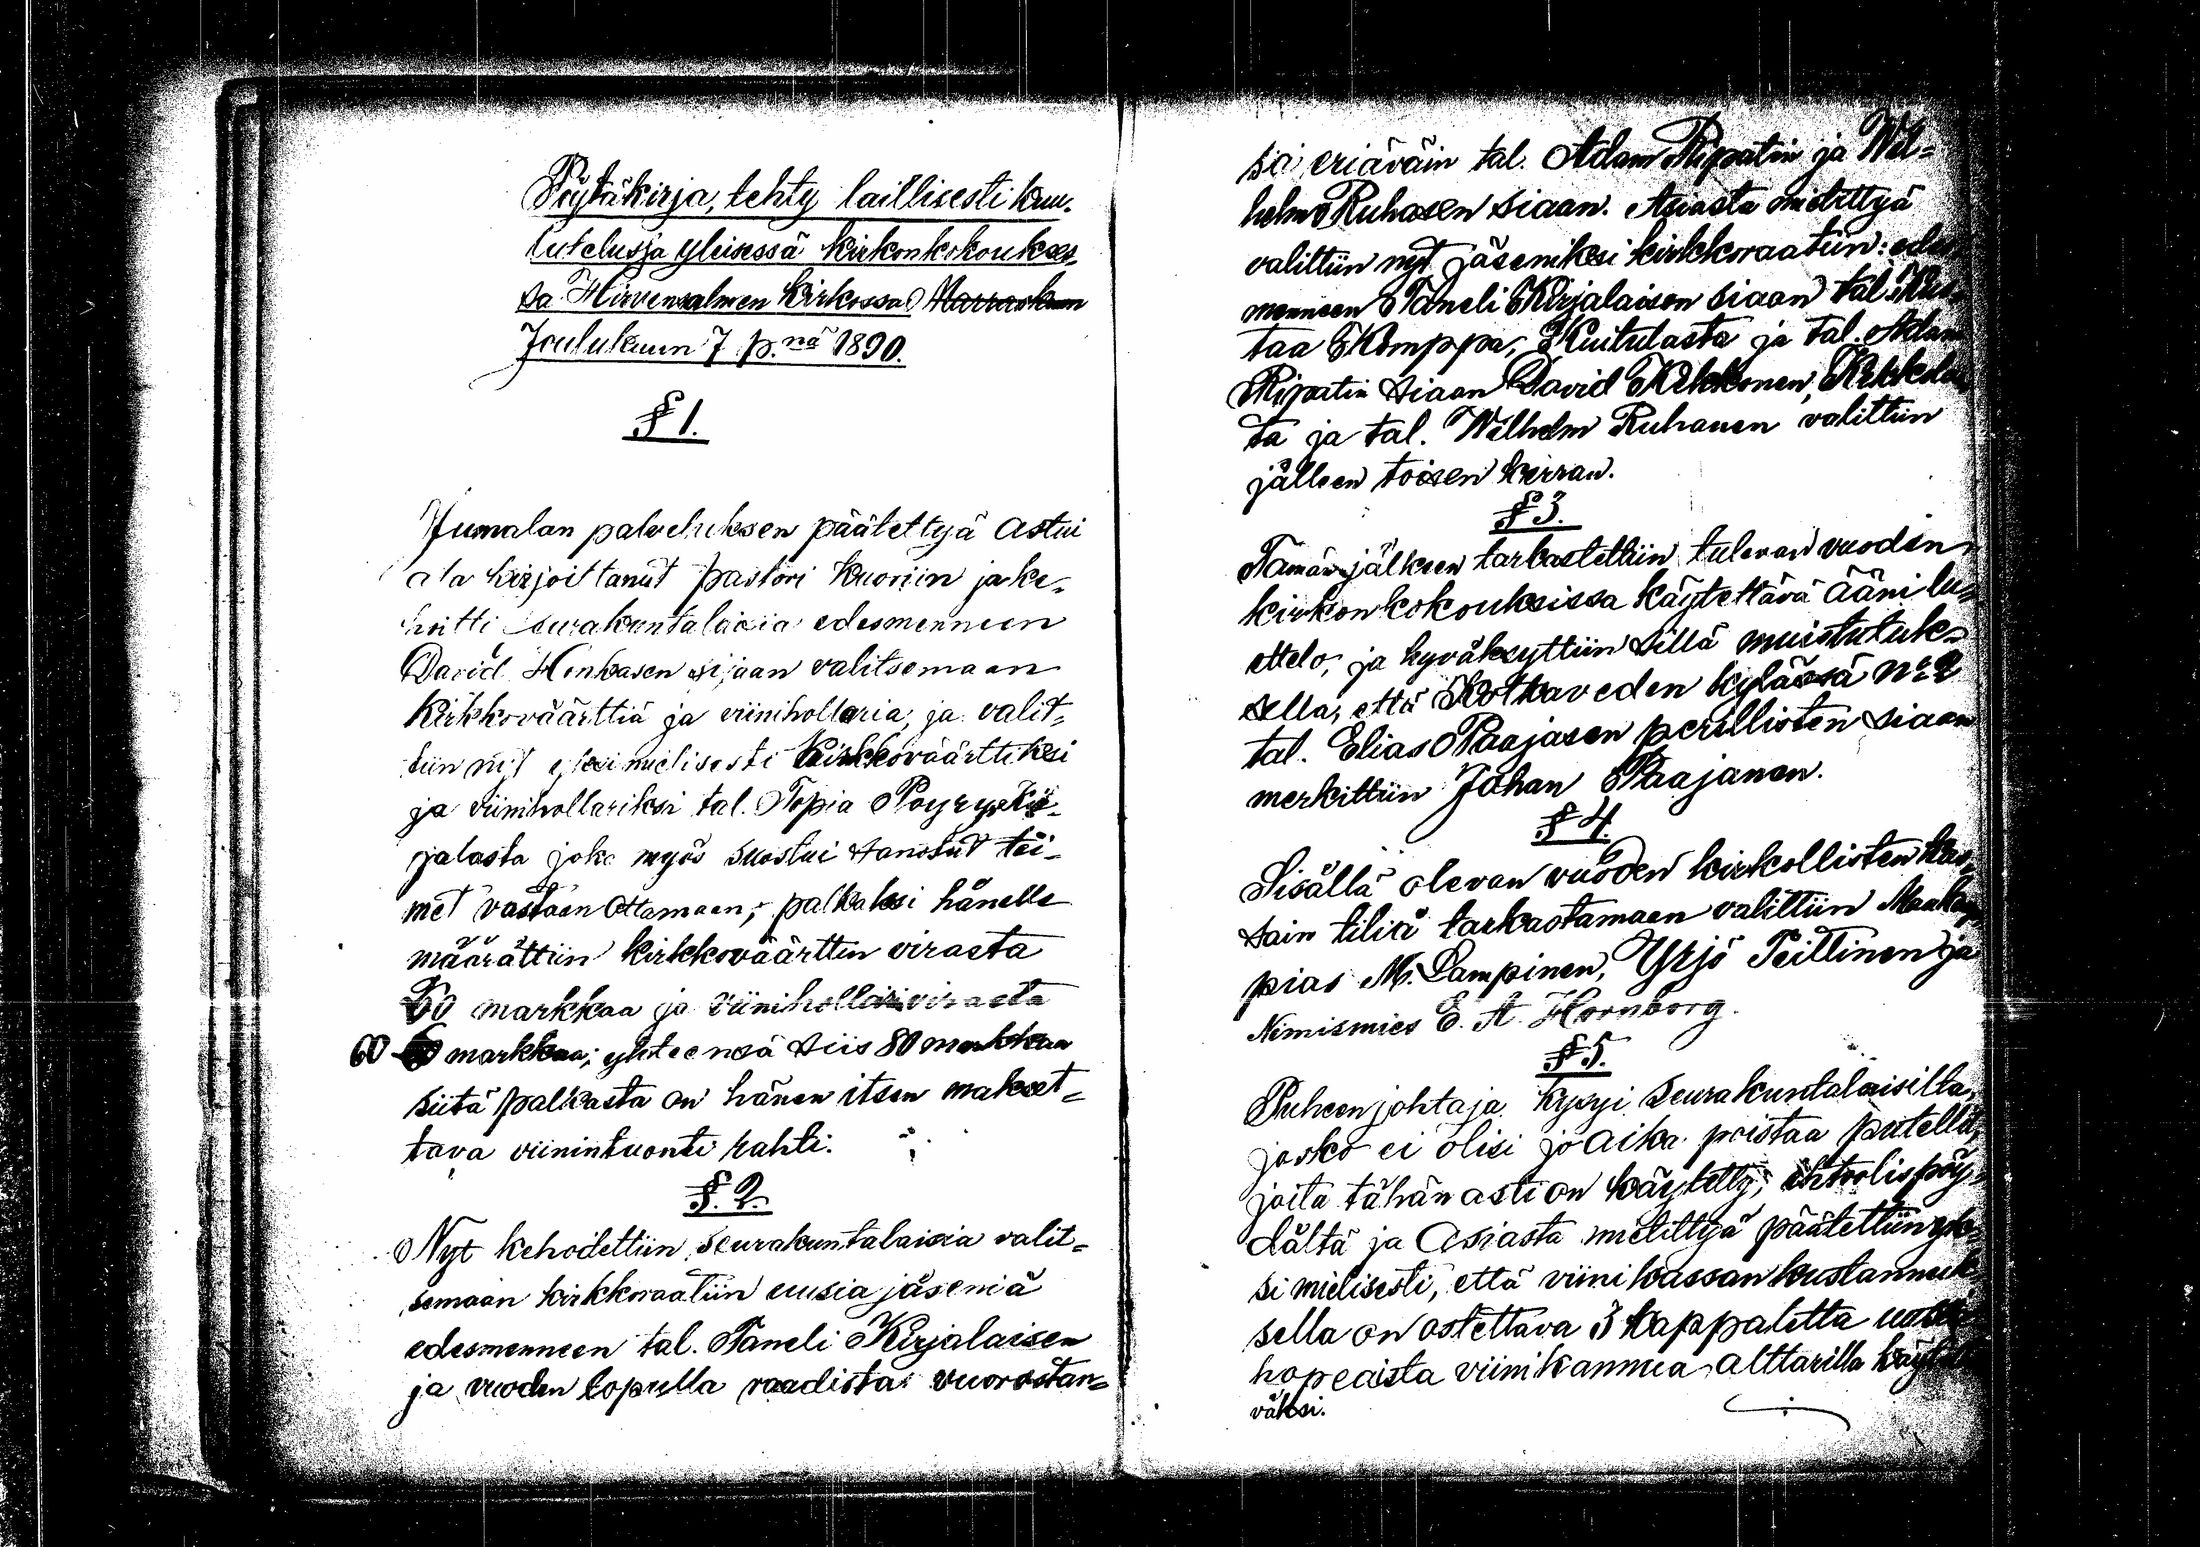 Pöytäkirja, tehty laillisesti kuu-
lutetussa yleisessä kirkonkokoukses-
sa Hirvensalmen kirkossa Marraskuun
Joulukuun 7 p.nä 1890.
§ 1.
Jumalan palveluksen päätettyä astui
ala kirjoittanut pastori kuoriin ja ke-
hoitti seurakuntalaisia edesmenneen
David Honkasen sijaan valitsemaan
kirkkoväärttiä ja viinihollaria, ja valit-
tiin nyt yksimielisesti kirkkoväärttiksi
ja viinihollariksi tal. Topia Pöyry
jalasta joka myös suostui sanotut toi-
met vastaan ottamaan; palkaksi hänelle
määrättiin kirkkoväärttin virasta
markkaa ja viinihollarivirasta
60 markkaa; yhteensä siis 80 markkaa
siitä palkasta on hänen itsen makset-
tava viinintuonti rahti.
§. 2.
Nyt kehoitettiin seurakuntalaisia valit-
semaan kirkkoraatiin uusia jäseniä
edesmenneen tal. Taneli Kirjalaisen
ja vuoden lopulla raadista vuorostan-
sa eriäväin tal. Adam Ripatin ja Wil-
helm Ruhasen siaan. Asiasta mietittyä
valittiin nyt jäseniksi kirkkoraatiin: edes-
menneen Taneli Kirjalaisen siaan tal. Kus-
taa Komppa, Kuitulasta ja tal. Adam
Ripatin siaan David Kekkonen, Kekkolas-
ta ja tal. Wilhelm Ruhanen valittiin
jälleen toisen kerran.
§ 3.
Tämän jälkeen tarkastettiin tulevan vuoden
kirkonkokouksissa käytettävä ääni lu-
ettelo, ja hyväksyttiin sillä muistutuk-
sella, että Kotkaveden kylässä No 2
tal. Elias Paajasen perillisten siaan
merkittiin Johan Paajanen.
§ 4.
Sisällä olevan vuoden kirkollisten kas-
sain tiliä tarkastamaan valittiin
pias M. Lampinen, Yrjö Teittinen ja
Nimismies E. A. Hornborg.
§ 5.
Puheenjohtaja kysyi seurakuntalaisilta,
josko ei olisi jo aika poistaa putellit,
joita tähän asti on käytetty, ehtoolispöy-
dältä ja Asiasta mietittyä päätettiin yk-
si mielisesti, että viinikassan kustannuk-
sella on ostettava 3 kappaletta uutta
hopeaista viinikannua alttarilla käytet-
väksi.